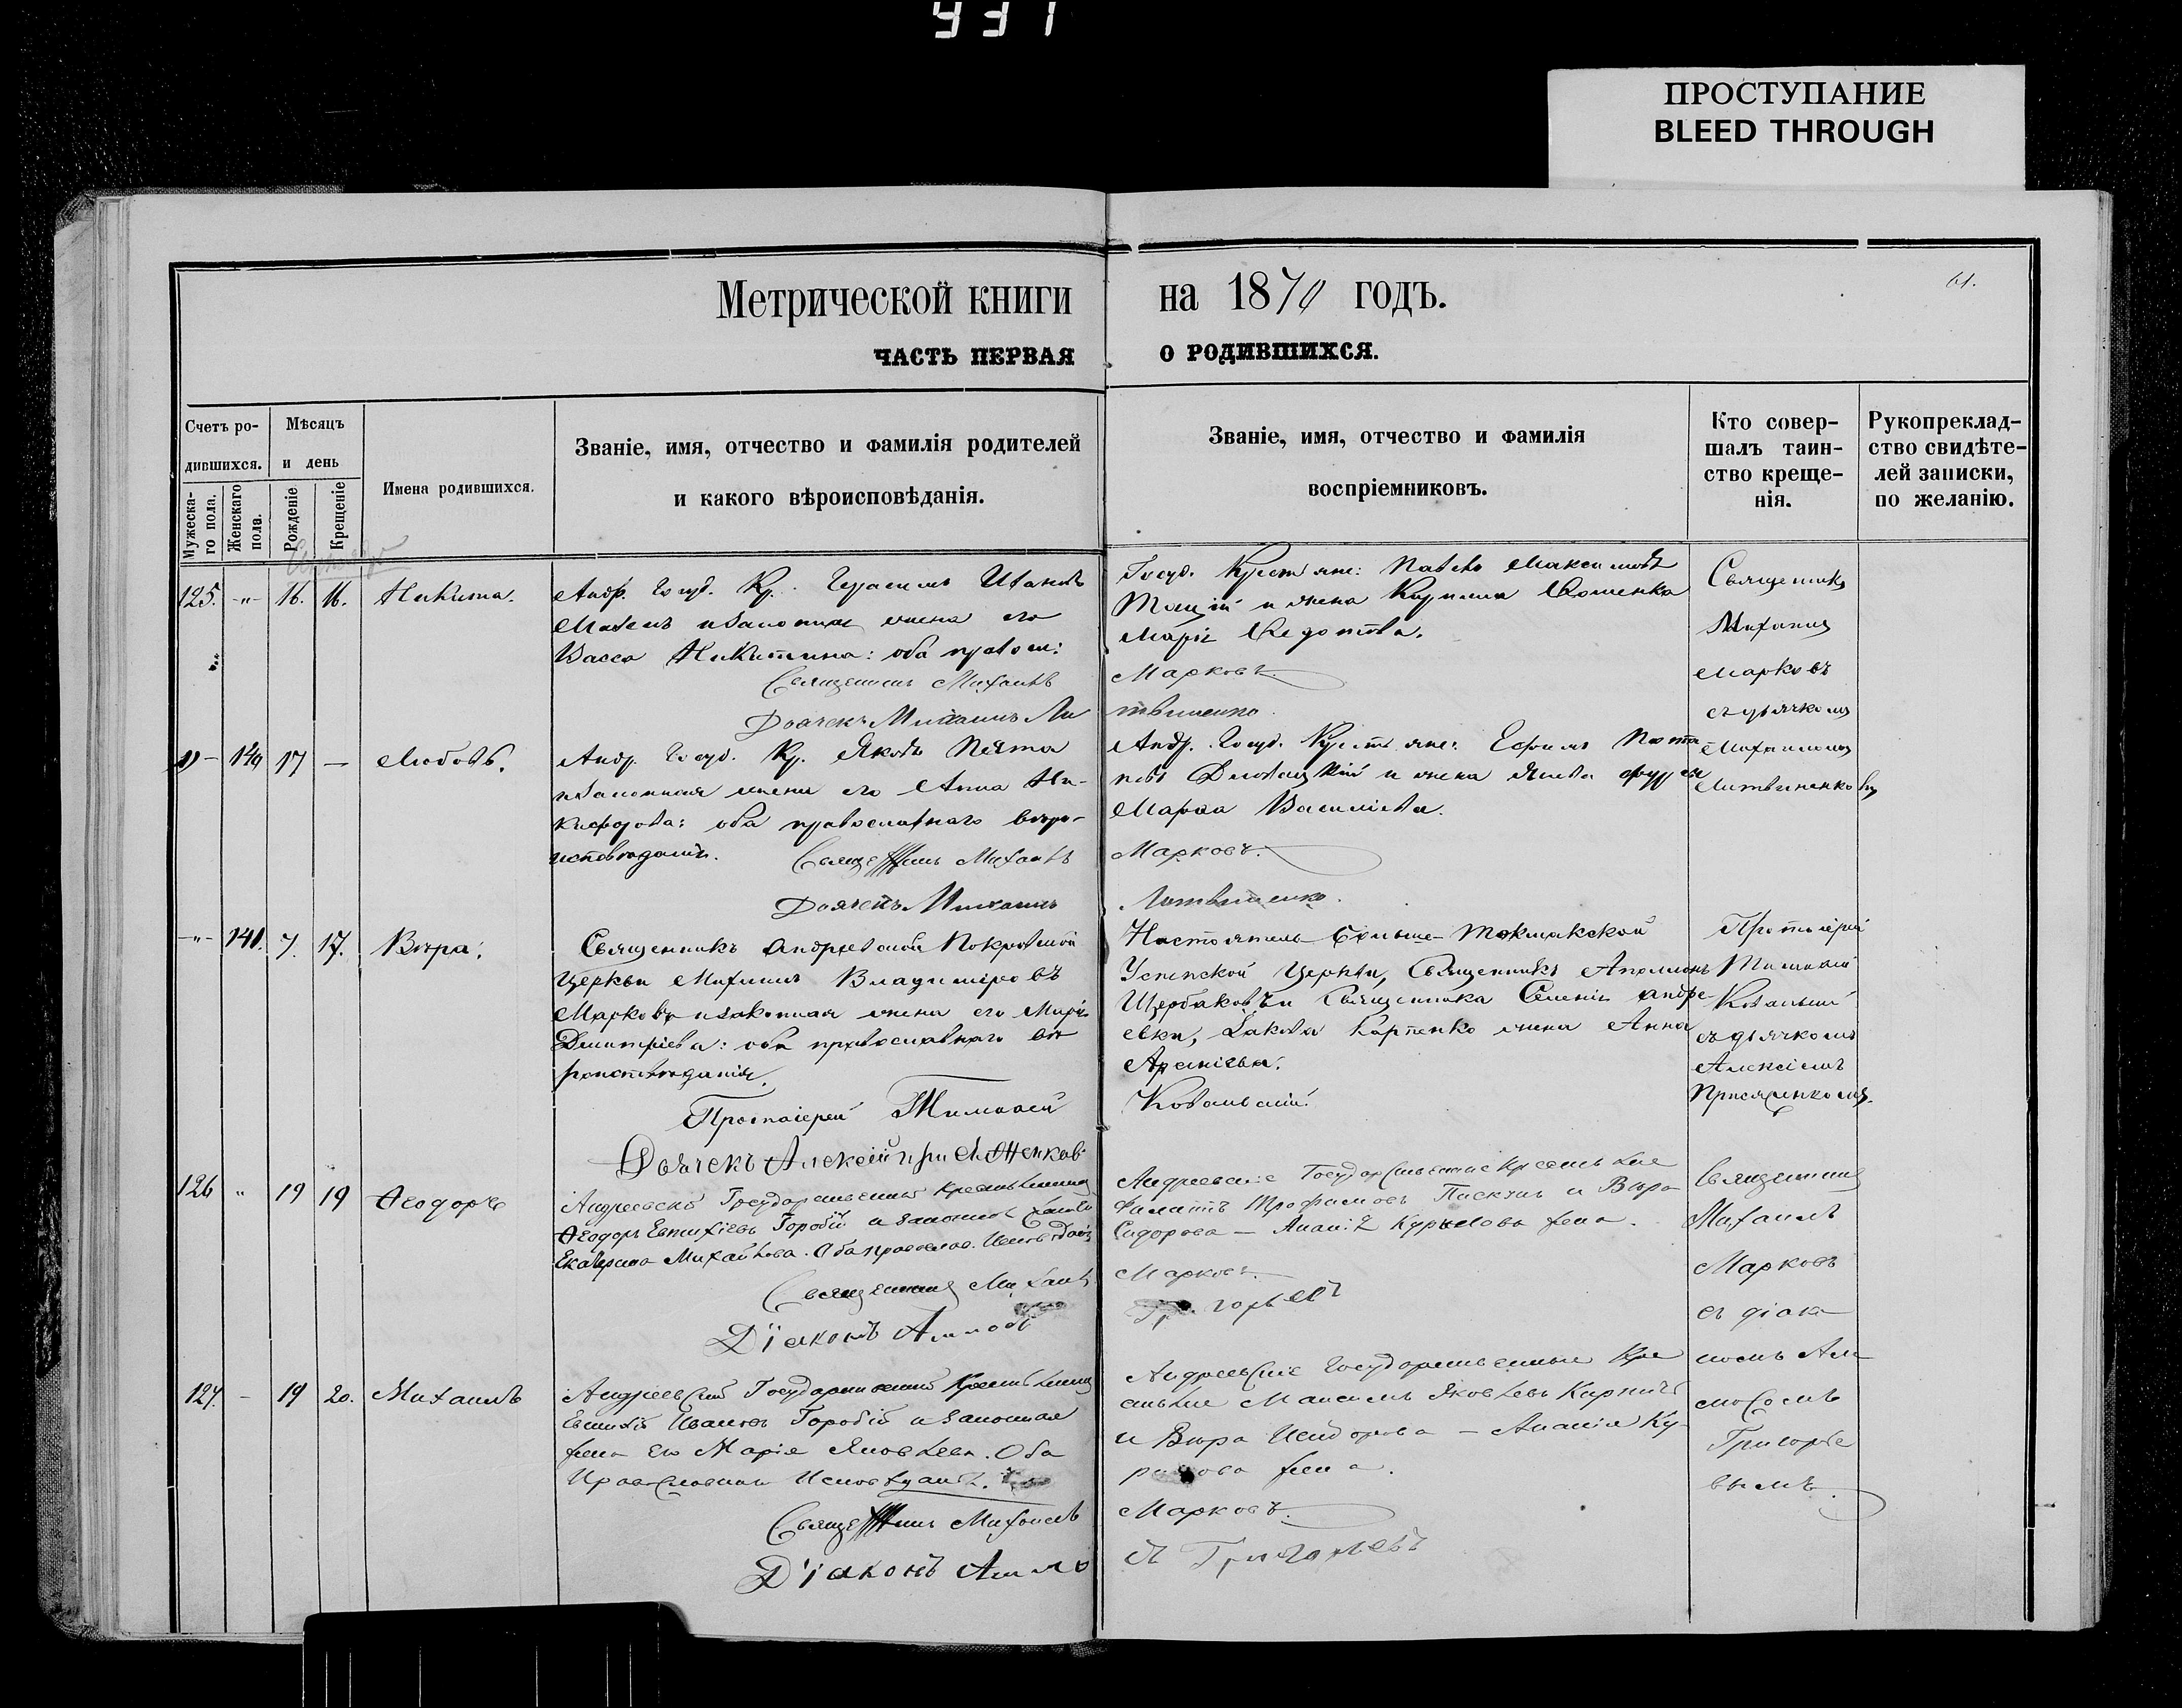 931
ПРОСТУПАНИЕ
BLEED THROUGH
Метрической книги на 1870 годъ.
61.
ЧАСТЬ ПЕРВАЯ О РОДИВШИХСЯ.
Счетъ ро-
дившихся.
Мужеска-
го пола.
Женскаго
пола.
Мѣсяцъ
и день
Рожденіе
Крещеніе
Имена родившихся.
Званіе, имя, отчество и фамилія родителей
и какого вѣроисповѣданія.
Званіе, имя, отчество и фамилія
воспріемниковъ.
Кто совер-
шалъ таин-
ство креще-
нія.
Рукопреклад-
ство свидѣте-
лей записки,
по желанію.
125. -"- 16. 16. Никита.
Андр. Госуд. Кр. Герасимъ Ивановъ
и законная жена его
Васса Никитина: оба правосл:
Священникъ Михаилъ
Дьячекъ Михаилъ Ли
Госуд. Крестьяне: Павелъ Максимовъ
и жена Кирилла
Марія Федотова.
Марковъ
твиненко.
Священникъ
Михаилъ
Марковъ
съ дьячкомъ
Михаиломъ
Литвиненковымъ
140 17 — Любовь.
Андр. Госуд. Кр. Яковъ
и законная жена его Анна Ни-
кифорова: оба православнаго вѣро-
исповѣданія.
Священникъ Михаилъ
Дьячекъ Михаилъ
Андр. Госуд. Крестьяне: Ефимъ Пота
повъ и жена Якова
Марфа Васильева.
Марковъ.
Литвиненко.
-"- 141. 7. 17. Вѣра.
Священникъ Андреевской Покровской
Церкви Михаилъ Владиміровъ
Марковъ и законная жена его Марія
Дмитріева: оба православнаго вѣ
роисповѣданія.
Протоіерей Тимофей
Дьячекъ Алексѣй Присяженков
Настоятель Больше-Токмакской
Успенской Церкви, Священникъ Аполлонъ
Щербаковъ и Священника Селенія Андре
евки, Іакова Карпенко жена Анна
Арсеніева.
Ковальскій.
Протоіерей
Тимофей
Ковальскій
съ дьячкомъ
Алексіемъ
Присяженкомъ.
126 " 19 19 Ѳеодоръ
Андреевскій Государственный Крестьянинъ
Ѳеодоръ Евтихіевъ Горобій и законная жена
Екатерина Михайлова. Оба православ. Исповѣданія
Священникъ Михаилъ
Діаконъ Аммосъ
Андреевскіе Государственные Крестьяне
Филатъ Трофимовъ и Вѣра
Сидорова — Ананія жена.
Марковъ.
Григорьевъ
Священникъ
Михаилъ
Марковъ
съ діако
номъ Ам
мосомъ
Григорье
вымъ.
127. - 19 20. Михаилъ
Андреевскій Государственный Крестьянинъ
Евтихій Ивановъ Горобій и законная
жена его Марія Яковлева. Оба
Православнаго Исповѣданія.
Священникъ Михаилъ
Діаконъ Аммо
Андреевскіе Государственные Кре
стьяне Максимъ Яковлевъ
и Вѣра Исидорова — Ананія Ку-
жена.
Марковъ.
съ Григорьевъ